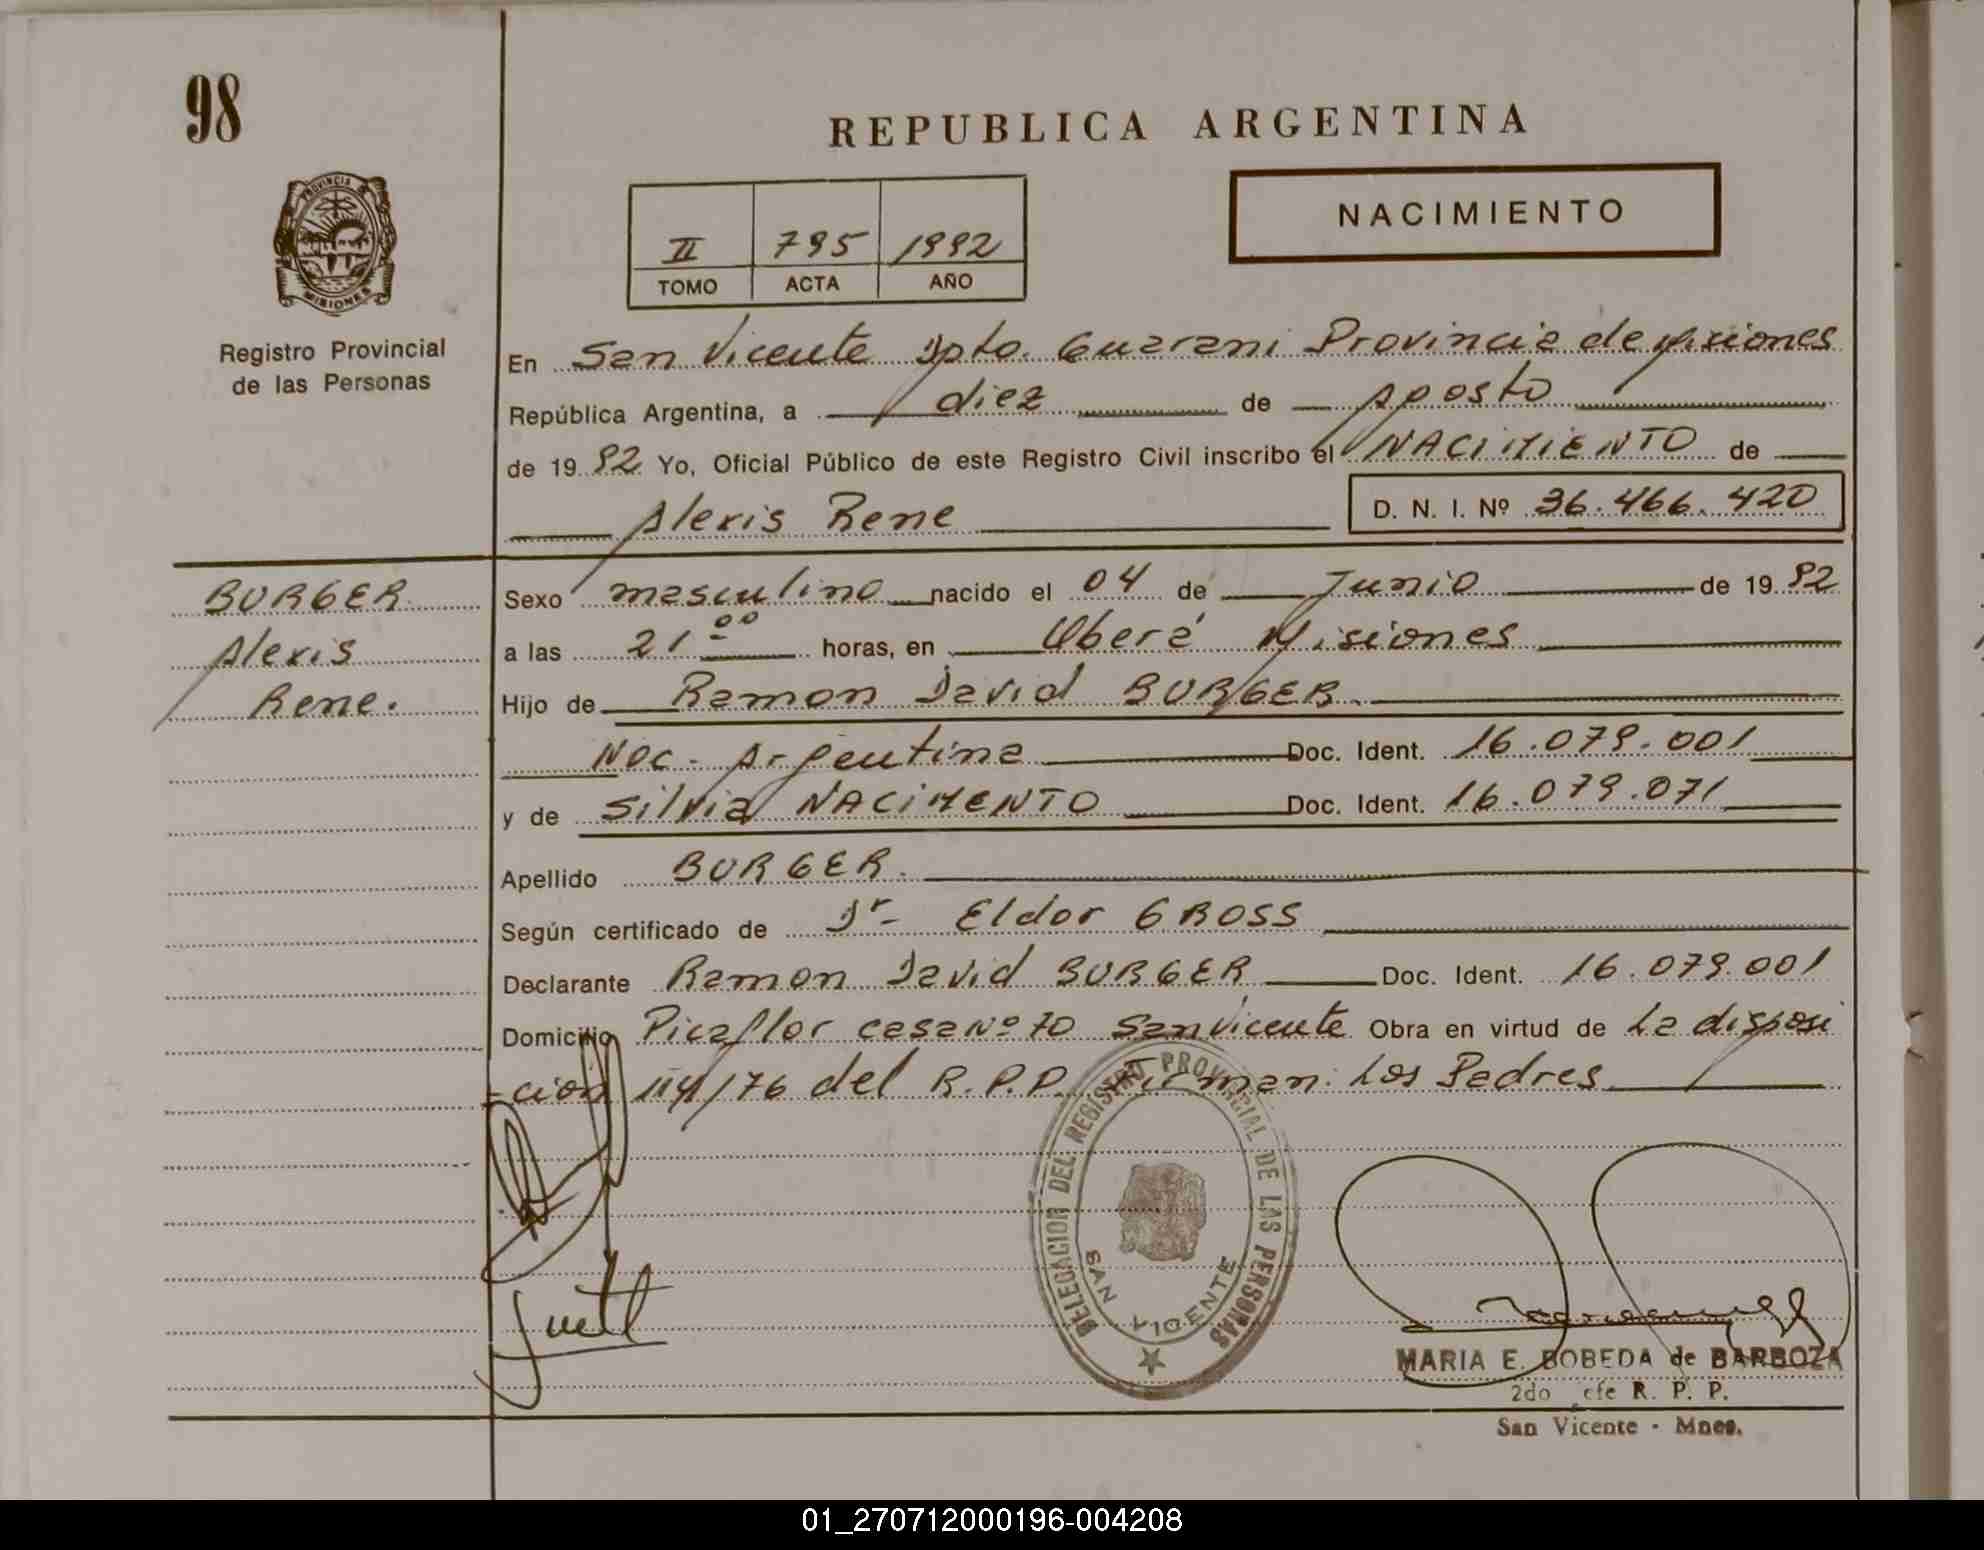 98
REPUBLICA ARGENTINA
NACIMIENTO
II 795 1992
TOMO ACTA AÑO
PROVINCIA DE
MISIONES
Registro Provincial
de las Personas
En San Vicente Dpto. Guarani Provincia de Misiones
República Argentina, a diez de Agosto
de 19 92 Yo, Oficial Público de este Registro Civil inscribo el NACIMIENTO de
Alexis Rene D. N. I. Nº 36.466.420
BURGER
Alexis
Rene.
Sexo masculino nacido el 04 de Junio de 19 92
a las 21 00 horas, en Oberá Misiones
Hijo de Ramon David BURGER
Nac. Argentina Doc. Ident. 16.079.001
y de Silvia NACIMENTO Doc. Ident. 16.079.071
Apellido BURGER.
Según certificado de Dr. Eldor GROSS
Declarante Ramon David BURGER Doc. Ident. 16.079.001
Domicilio Picaflor casa Nº 70 San Vicente Obra en virtud de La disposi
-ción 114/76 del R.P.P. Firman: Los Padres
DELEGACION DEL REGISTRO PROVINCIAL DE LAS PERSONAS
SAN VICENTE
MARIA E. BOBEDA de BARBOZA
2do efe R. P. P.
San Vicente - Mnes.
01_270712000196-004208